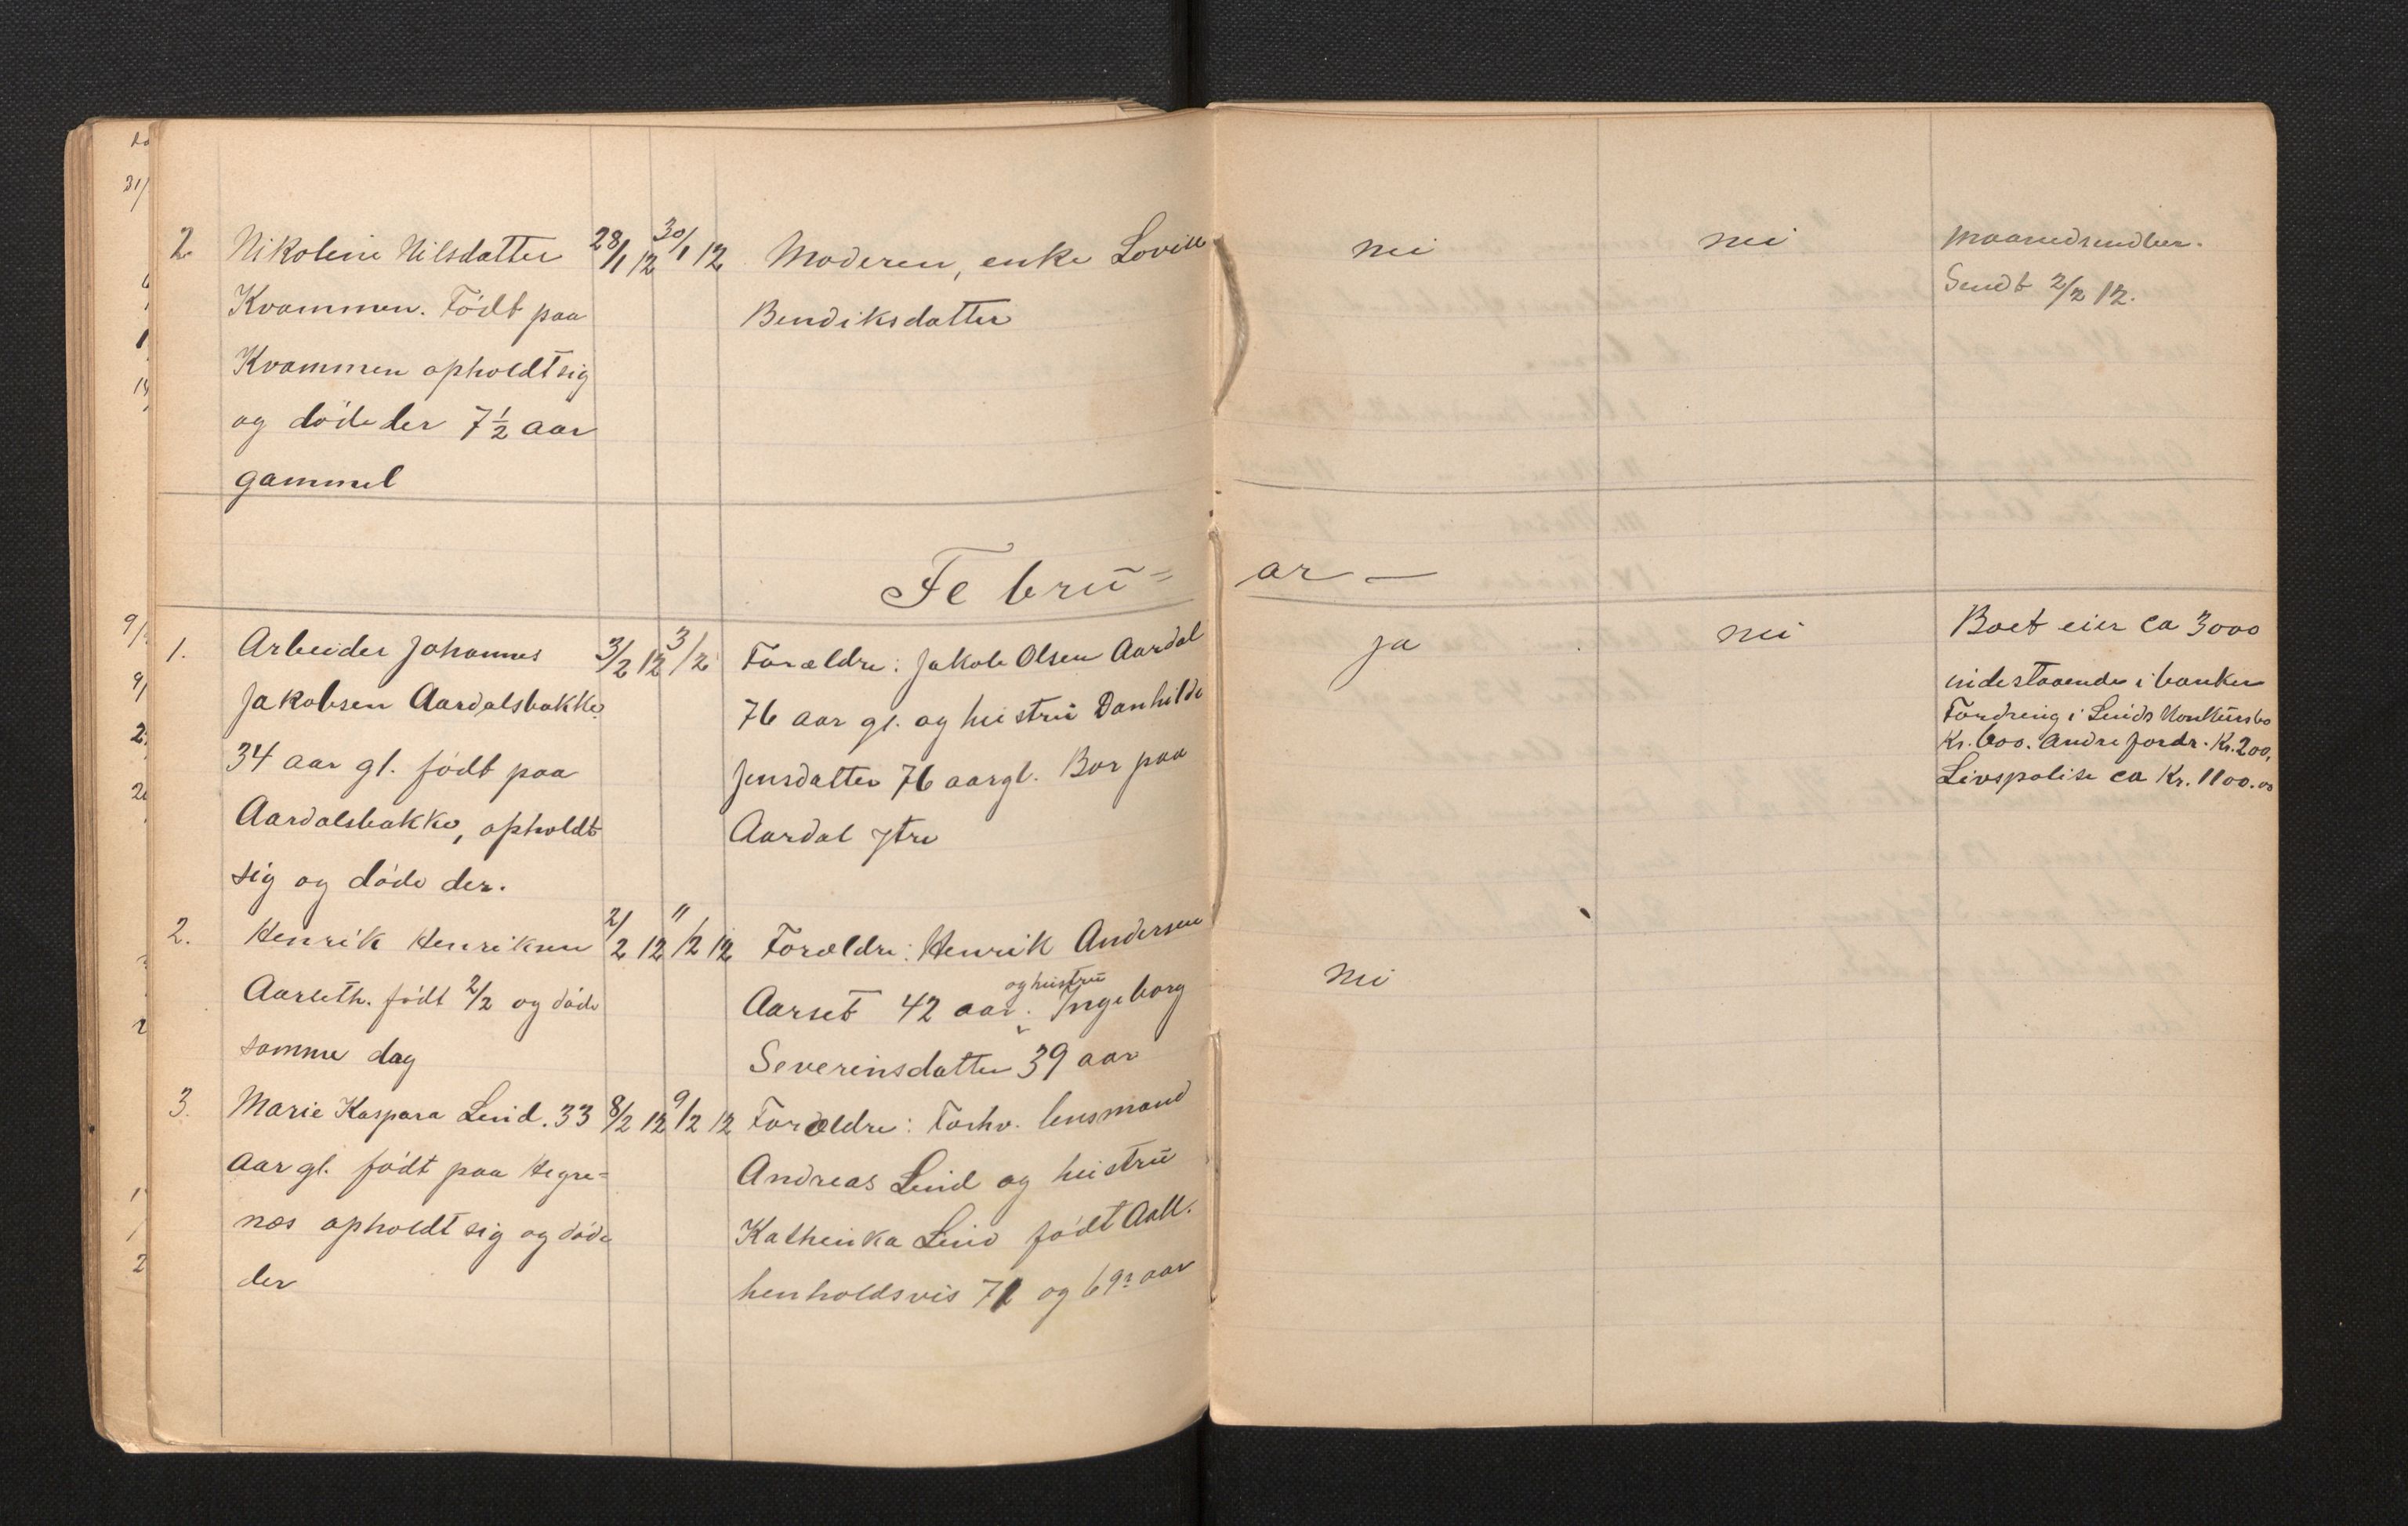 2. Nikoline Nilsdatter 28/1 12 30/1 12 Moderen, enke Lovise nei nei Maanedsindber.
Kvammen. Födt paa Bendiksdatter Sendt 2/2 12.
Kvammen opholdt sig
og döde der 7½ aar
gammel
Febru=ar —
1. Arbeider Johannes 3/2 12 3/2 Forældre: Jakob Olsen Aardal ja nei Boet eier ca 3000
Jakobsen Aardalsbakke. 76 aar gl. og hustru Danhilde indestaaende i banken
34 aar gl. födt paa Jensdatter 76 aar gl. Bor paa Fordring i Linds Konkursbo
Aardalsbakke, opholdt Aardal ytre Kr. 600. Andre fordr. Kr. 200,
sig og döde der. Livspolise ca Kr. 1100.00
2. Henrik Henriksen 2/2 12 11/2 12 Forældre: Henrik Andersen nei
Aarseth. födt 2/2 og döde Aarset 42 aar. og hustru Ingeborg
samme dag Severinsdatter 39 aar
3. Marie Kaspara Lind. 33 8/2 12 9/2 12 Forældre: Forhv. lensmand
aar gl. födt paa Hegre= Andreas Lind og hustru
næs opholdt sig og döde Kathinka Lind födt Aall.
der henholdsvis 71 og 69? aar